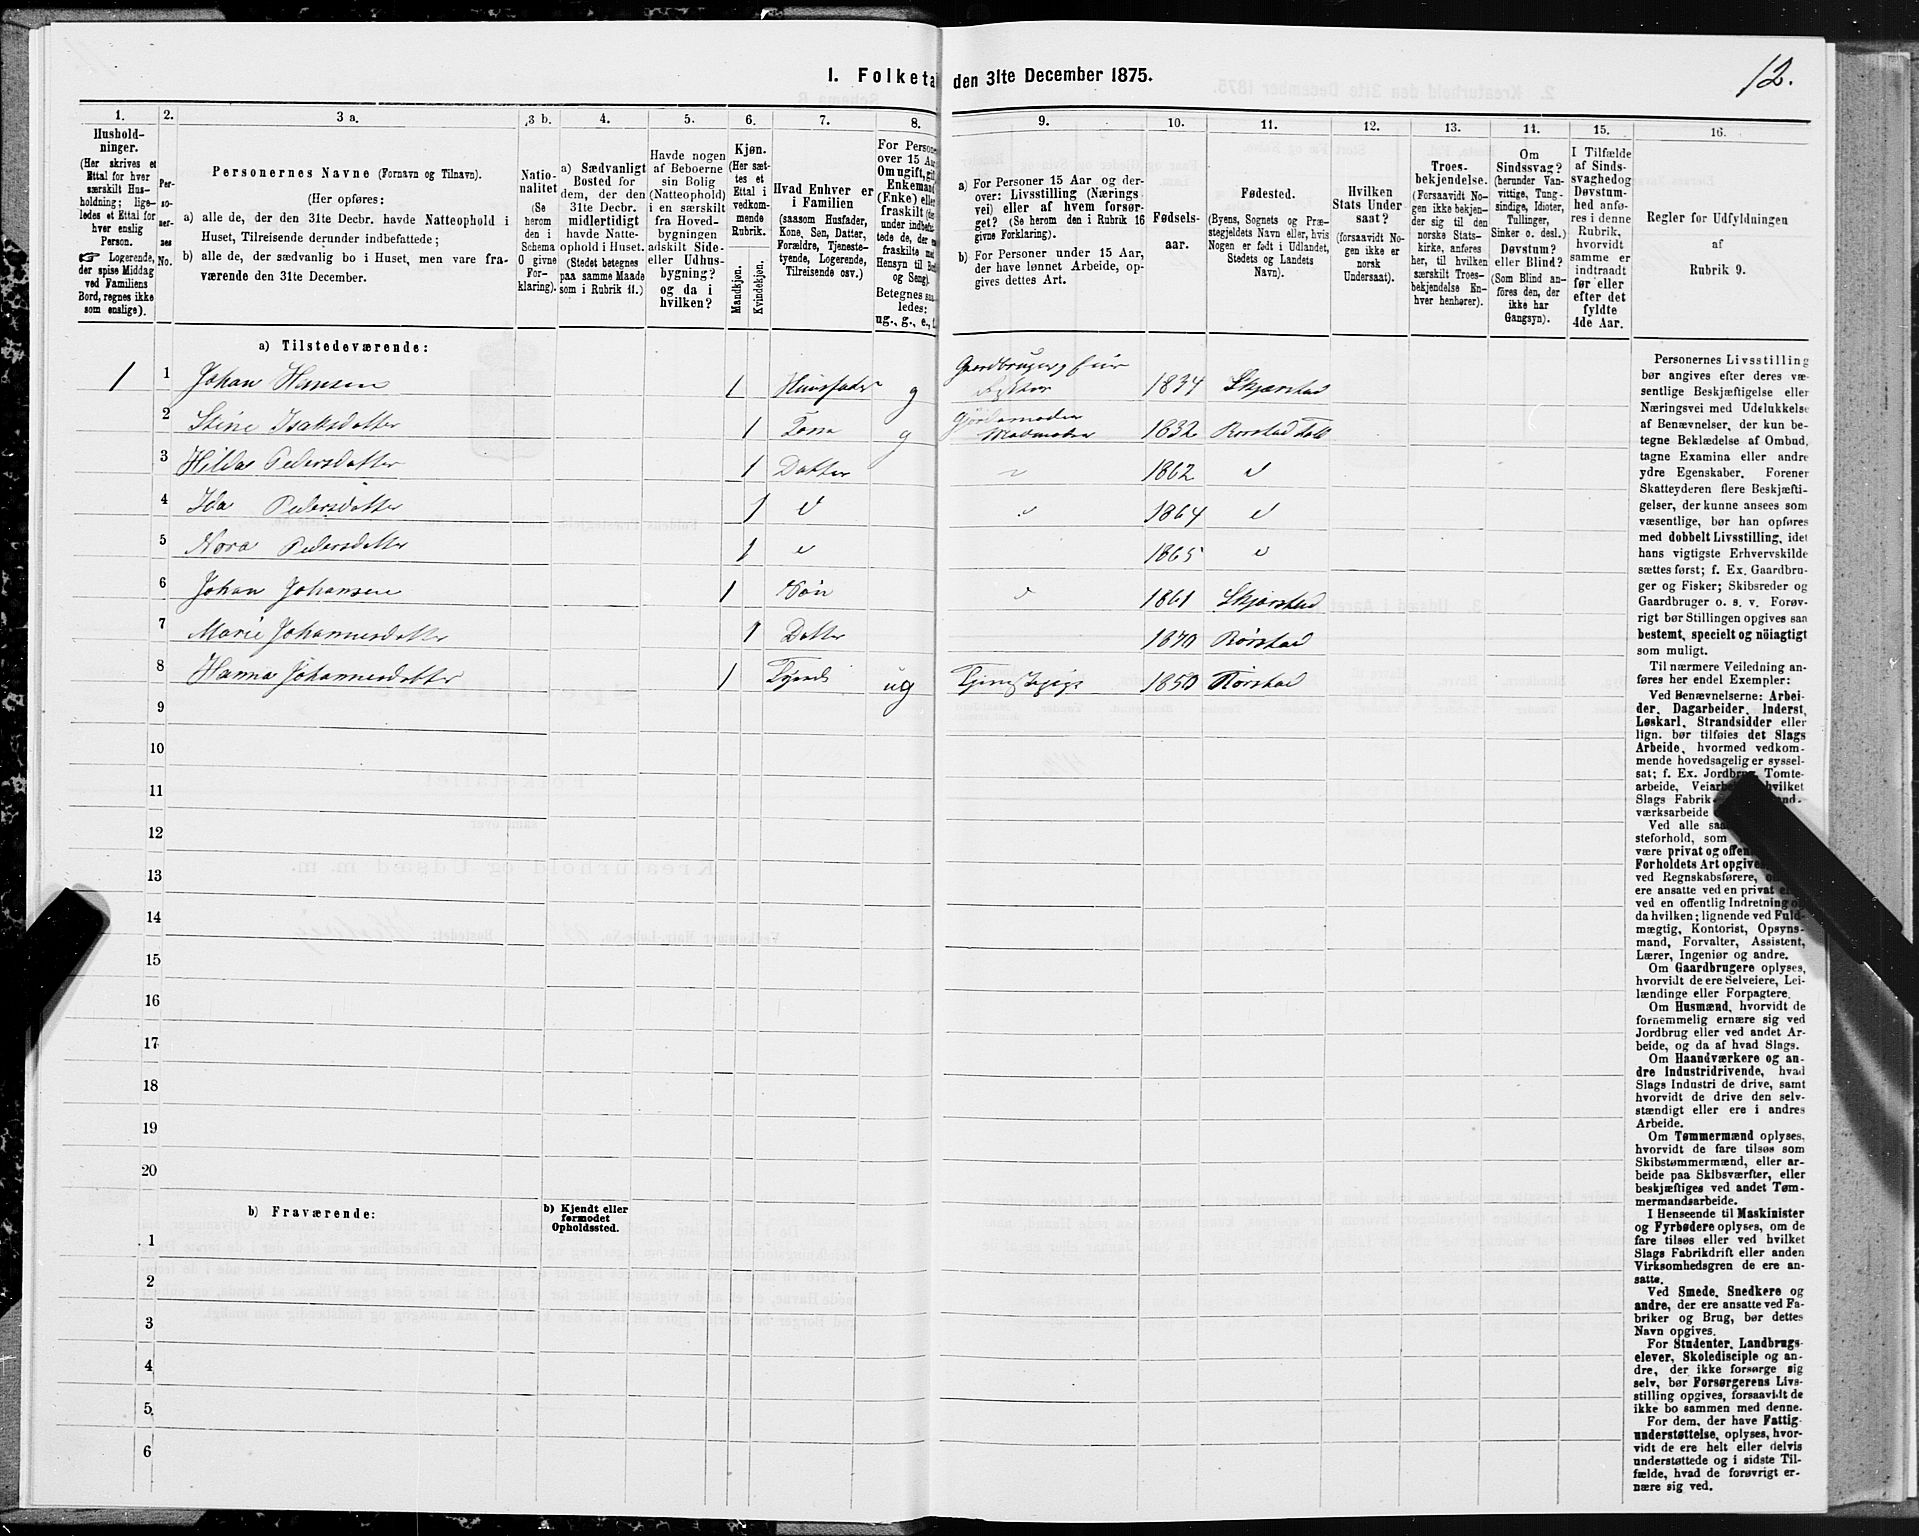 12.
I. Folketæ den 31te December 1875.
1. 2. 3 a. 3 b. 4. 5. 6. 7. 8. 9. 10. 11. 12. 13. 14. 15. 16.
Hushold-
ninger.
(Her skrives et
Ettal for hver
særskilt Hus-
holdning; lige-
ledes et Ettal for
hver enslig
Person.
☞ Logerende,
der spise Middag
ved Familiens
Bord, regnes ikke
som enslige).
Per-
so-
ner-
nes
No.
Personernes Navne (Fornavn og Tilnavn).
(Her opføres:
a) alle de, der den 31te Decbr. havde Natteophold i
Huset, Tilreisende derunder indbefattede;
b) alle de, der sædvanlig bo i Huset, men vare fra-
værende den 31te December.
Natio-
nalitet
(Se
herom
den i
Schema
O givne
For-
klaring).
a) Sædvanligt
Bosted for
dem, der den
31te Decbr.
midlertidigt
havde Natte-
ophold i Huset.
(Stedet betegnes
paa samme Maade
som i Rubrik 11.)
Havde nogen
af Beboerne
sin Bolig
(Natteophold)
i en særskilt
fra Hoved-
bygningen
adskilt Side-
eller Udhus-
bygning?
og da i
hvilken?
Kjøn.
(Her sæt-
tes et
Ettal i
vedkom-
mende
Rubrik.
Mandkjøn.
Kvindekjøn.
Hvad Enhver er
i Familien
(saasom Husfader,
Kone, Søn, Datter,
Forældre, Tjeneste-
tyende, Logerende,
Tilreisende osv.)
For Persone
over 15 Aar
Om ugift, gift
Enkemand
(Enke) eller
fraskilt (der
under indbefat-
tede de, der ere
fraskilte med
Hensyn til Bord
og Seng).
Betegnes saa-
ledes:
ug., g., e., f.
a) For Personer 15 Aar og der-
over: Livsstilling (Nærings
vei) eller af hvem forsør-
get? (Se herom den i Rubrik 16
givne Forklaring).
b) For Personer under 15 Aar,
der have lønnet Arbeide, op-
gives dettes Art.
Fødsels-
aar.
Fødested.
(Byens, Sognets og Præ-
stegjeldets Navn eller, hvis
Nogen er født i Udlandet,
Stedets og Landets
Navn).
Hvilken
Stats Under
saat?
(forsaavidt No-
gen ikke er
norsk
Undersaat).
Troes-
bekjendelse.
(Forsaavidt No-
gen ikke bekjen-
der sig til den
norske Stats-
kirke, anføres
her, til hvilken
særskilt Troes-
bekjendelse En-
hver henhører).
Om
Sindssvag?
(herunder Van-
vittige, Tung-
sindige, Idioter,
Tullinger,
Sinker o. desl.)
Døvstum?
eller Blind?
(Som Blind an-
føres den, der
ikke har
Gangsyn).
I Tilfælde
af Sinds-
svaghed og
Døvstum-
hed anfø-
res i denne
Rubrik,
hvorvidt
samme er
indtraadt
før eller
efter det
fyldte
4de Aar.
Regler for Udfyldningen
af
Rubrik 9.
a) Tilstedeværende:
1 1 Johan Hansen 1 Huusfader g Gaardbruger 1834 Skjærstad
2 Stine Isaksdatter 1 Kone g 1832 Rørstad
3 Hilda Pedersdatter 1 Datter " 1862 "
4 Ida Pedersdatter 1 " " 1864 "
5 Nora Pedersdatter 1 " 1865 "
6 Johan Johansen 1 Søn " 1861 Skjærstad
7 Marie Johannesdatter 1 Datter 1870 Rørstad
8 Hanna Johannesdatter 1 ug 1850 Rørstad
9
10
11
12
13
14
15
16
17
18
19
20
b) Fraværende:
b) Kjendt eller
formodet
Opholdssted.
1
2
3
4
5
6
Personernes Livsstilling
bør angives efter deres væ-
sentlige Beskjæftigelse eller
Næringsvei med Udelukkelse
af Benævnelser, der kun be-
tegne Beklædelse af Ombud,
tagne Examina eller andre
ydre Egenskaber. Forener
Skatteyderen flere Beskjæfti-
gelser, der kunne ansees som
væsentlige, bør han opføres
med dobbelt Livsstilling, idet
hans vigtigste Erhvervskilde
sættes først; f. Ex. Gaardbru-
ger og Fisker; Skibsreder og
Gaardbruger o. s. v. Forøv-
rigt bør Stillingen opgives saa
bestemt, specielt og nöiagtigt
som muligt.
Til nærmere Veiledning an-
føres her endel Exempler:
Ved Benævnelserne: Arbei-
der, Dagarbeider, Inderst,
Løskarl, Strandsidder eller
lign. bør tilføies det Slags
Arbeide, hvormed vedkom-
mende hovedsagelig er syssel-
sat; f. Ex. Jordbrug, Tomte-
arbeide, hvilket
Slags Fabrik
værksarbeide
Ved alle
steforhold, som
være privat og
Forholdets Art
ved Regnskabsførere,
ere ansatte ved en privat
ved en offentlig Indretning
da hvilken; lignende ved Fuld-
mægtig, Kontorist, Opsyns-
mand, Forvalter, Assistent,
Lærer, Ingeniør og andre.
Om Gaardbrugere oplyses,
hvorvidt de ere Selveiere, Lei-
lændinge eller Forpagtere.
Om Husmænd, hvorvidt de
fornemmelig ernære sig ved
Jordbrug eller ved andet Ar-
beide, og da af hvad Slags.
Om Haandværkere og an-
dre Industridrivende, hvad
Slags Industri de drive, samt
hvorvidt de drive den selv-
stændigt eller ere i andres
Arbeide.
Om Tømmermænd oplyses,
hvorvidt de fare tilsøs som
Skibstømmermænd, eller ar-
beide paa Skibsværfter, eller
beskjæftiges ved andet Tøm-
mermandsarbeide.
I Henseende til Maskinister
og Fyrbødere oplyses, om de
fare tilsøs eller ved hvilket
Slags Fabrikdrift eller anden
Virksomhedsgren de ere an-
satte.
Ved Smede, Snedkere og
andre, der ere ansatte ved Fa-
briker og Brug, bør dettes
Navn opgives.
For Studenter, Landbrugs-
elever, Skoledisciple og an-
dre, der ikke forsørge sig
selv, bør Forsørgerens Livs-
stilling opgives, forsaavidt de
ikke bo sammen med denne.
For dem, der have Fattig-
understøttelse, oplyses, hvor-
vidt de ere helt eller delvis
understøttede og i sidste Til-
fælde, hvad de forøvrigt er-
nære sig ved.